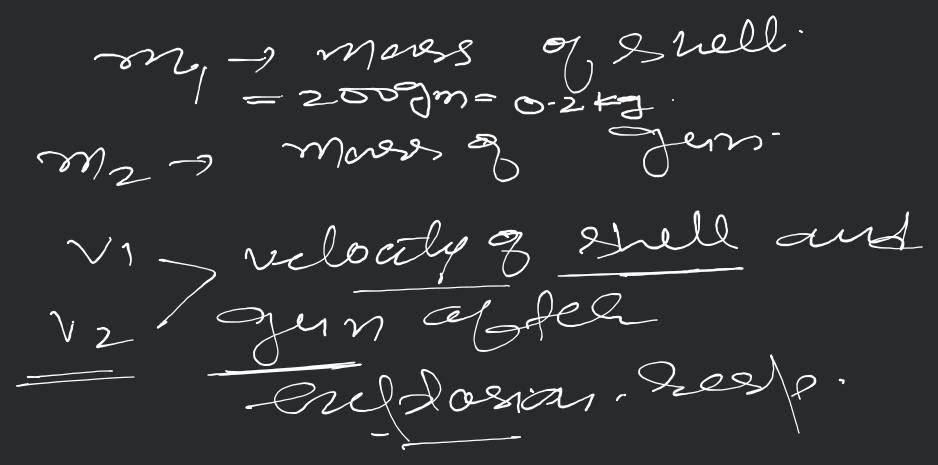 m₁ → mass of shell.
= 200gm = 0.2 kg.
m₂ → mass of gun.
v1 > velocity of shell and
v₂ gun after
explosion. resp.